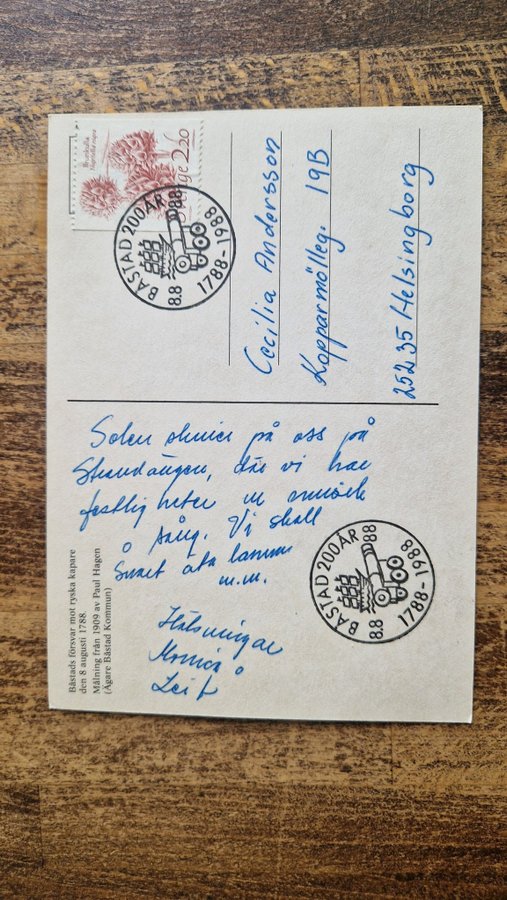 Båstads försvar mot ryska kapare
den 8 augusti 1788.
Målning från 1909 av Paul Hagen
(Ägare Båstad Kommun)
Solen skiner på oss på
Strandängen, där vi har
festligheter m musik
o sång. Vi skall
snart äta lamm
m.m.
Hälsningar
Monica o
Leif
BÅSTAD 200 ÅR
8.8 88
1788-1988
Brunkulla
Nigritella nigra
Sverige 2.20
BÅSTAD 200 ÅR
8.8 88
1788-1988
Cecilia Andersson
Kopparmölleg. 19B
252 35 Helsingborg